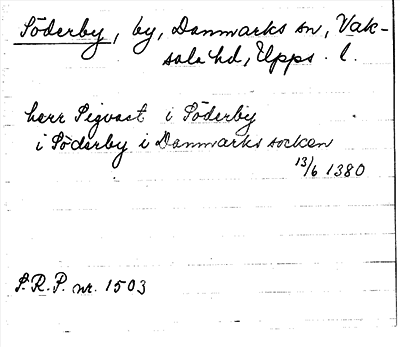 Söderby, by, Danmarks sn, Vak-
sala hd, Upps. l.
herr Sigvast i Söderby
i Söderby i Danmarks socken
13/6 1380
S.R.P. nr. 1503